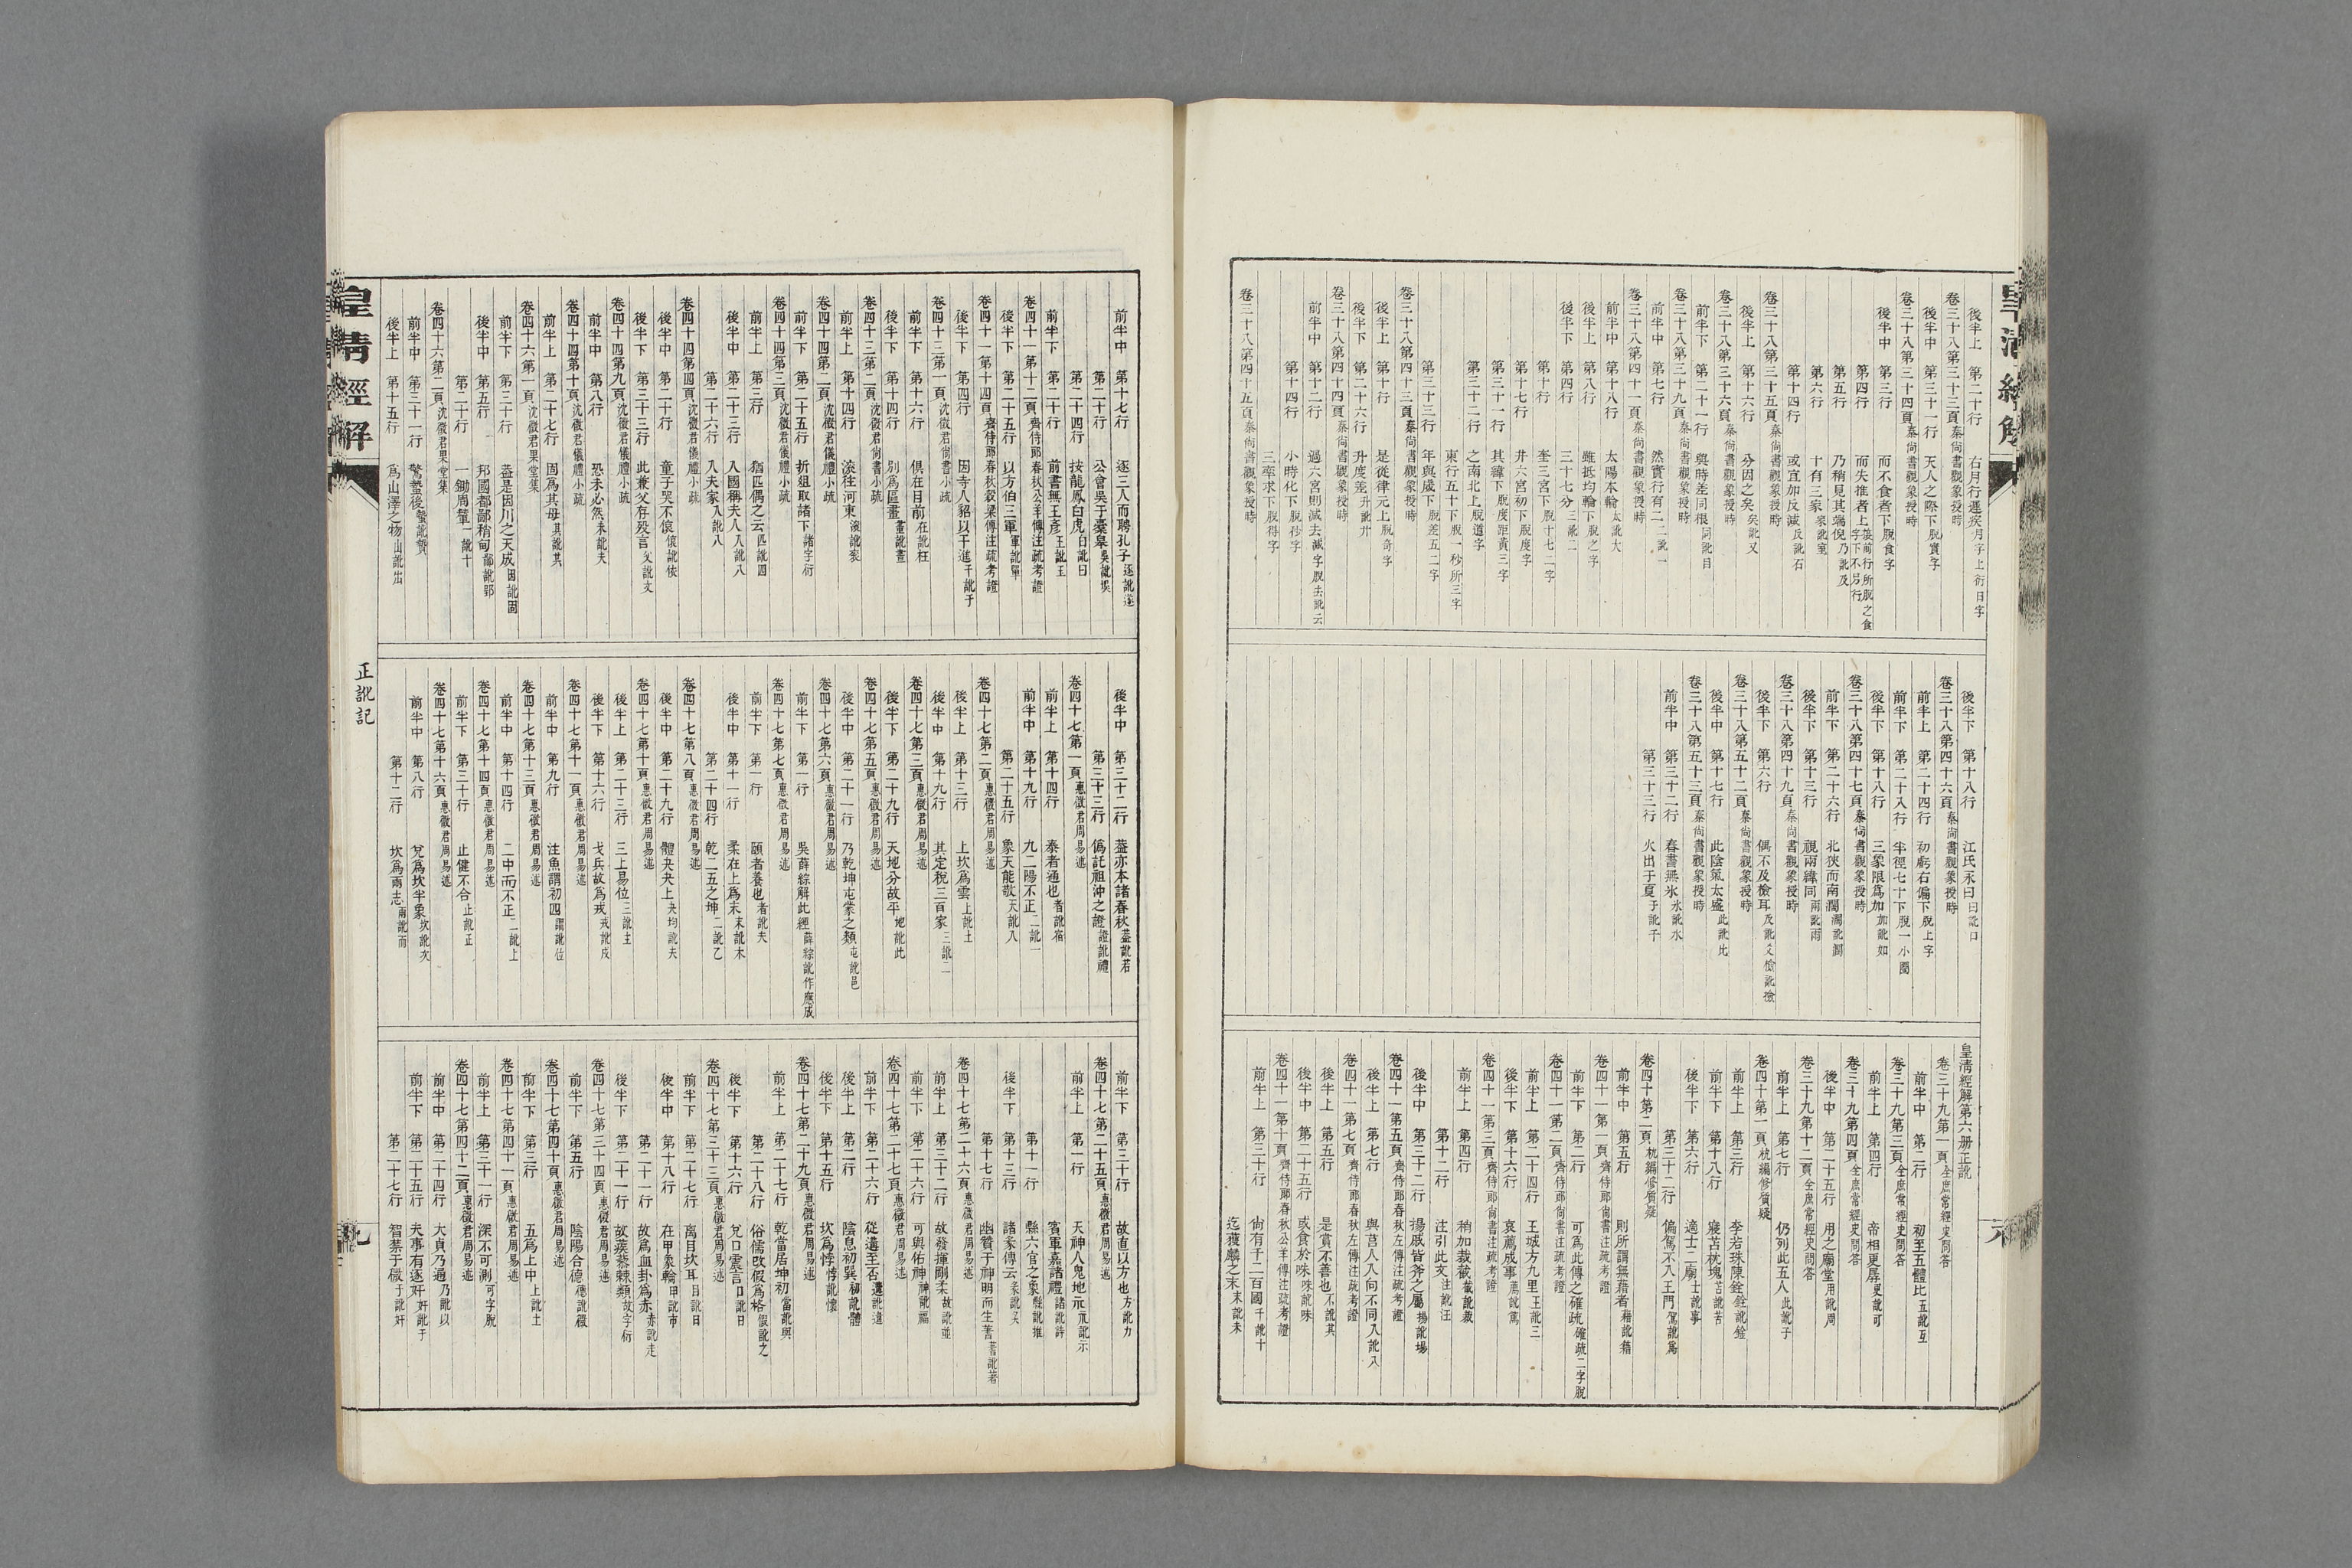 後半上　第二十行　右月行遲疾月字上衍日字
卷三十八第三十三頁秦尙書觀象授時
後半中　第三十一行　天人之際下脫實字
卷三十八第三十四頁秦尙書觀象授時
後半中　第三行　而不食者下脫食字
第四行　而失推者上
第五行　乃稍見其端倪乃訛及
第六行　十有三家家訛冡
第十四行　或宜加反減反訛石
卷三十八第三十五頁秦尙書觀象授時
後半上　第十六行　分因之矣矣訛又
卷三十八第三十六頁秦尙書觀象授時
前半下　第二十一行　與時差同根同訛目
卷三十八第三十九頁秦尙書觀象授時
前半中　第七行　然實行有二二訛一
卷三十八第四十一頁秦尙書觀象授時
前半中　第十八行　太陽本輪太訛大
後半上　第八行　雖抵均輪下脫之字
後半下　第四行　三十七分三訛二
第十行　奎三宮下脫十七二字
第十七行　井六宮初下脫度字
第三十一行　其緯下脫度距黃三字
第三十二行　之南北上脫道字
東行五十下脫一秒所三字
第三十三行　年與歲下脫差五二字
卷三十八第四十三頁秦尙書觀象授時
後半上　第十行　是從律元上脫奇字
後半下　第二十六行　升度差升訛廾
卷三十八第四十四頁秦尙書觀象授時
前半中　第十二行　過六宮則減去減字脫去訛云
第十四行　小時化下脫秒字
三率求下脫得字
卷三十八第四十五頁秦尙書觀象授時
後半下　第十八行　江氏永曰曰訛口
卷三十八第四十六頁秦尙書觀象授時
前半上　第二十四行　初虧右偏下脫上字
前半下　第二十八行　半徑七十下脫一小圈
後半下　第十八行　三象限爲加加訛如
卷三十八第四十七頁秦尙書觀象授時
前半下　第二十六行　北狹而南濶濶訛闊
後半下　第十三行　視兩緯同兩訛雨
卷三十八第四十九頁秦尙書觀象授時
後半下　第六行　偶不及檢耳及訛又檢訛撿
卷三十八第五十二頁秦尙書觀象授時
後半中　第十七行　此陰氣太盛此訛比
卷三十八第五十三頁秦尙書觀象授時
前半中　第三十二行　春書無氷氷訛水
第三十三行　火出于夏于訛千
皇淸經解第六册正訛
卷三十九第一頁全庶常經史問答
前半中　第二行　初至五體比五訛互
卷三十九第三頁全庶常經史問答
前半上　第四行　帝相更孱更訛可
卷三十九第四頁全庶常經史問答
後半中　第二十五行　用之廟堂用訛周
卷三十九第十二頁全庶常經史問答
前半上　第七行　仍列此五人此訛子
卷四十第一頁杭編修質疑
前半上　第三行　李若珠陳銓銓訛銓
前半下　第十八行　寢苫枕塊苫訛苦
後半下　第六行　適士二廟士訛事
第三十二行　偏駕不入王門駕訛爲
卷四十第二頁杭編修質疑
前半中　第五行　則所謂無藉者藉訛籍
卷四十一第一頁齊侍郎尙書注疏考證
前半下　第二行　可爲此傳之確疏確疏二字脫
卷四十一第二頁齊侍郎尙書注疏考證
前半上　第二十四行　王城方九里王訛三
後半下　第十六行　哀薦成事薦訛篤
卷四十一第三頁齊侍郎尙書注疏考證
前半上　第四行　稍加裁截截訛裁
第十二行　注引此文注訛汪
後半中　第三十二行　揚戚皆斧之屬揚訛場
卷四十一第五頁齊侍郎春秋左傳注疏考證
後半上　第七行　與莒人入向不同入訛八
卷四十一第七頁齊侍郎春秋左傳注疏考證
後半上　第五行　是賞不善也不訛其
後半中　第二十五行　或食於咮咮訛味
卷四十一第十頁齊侍郎春秋公羊傳注疏考證
前半上　第三十行　尙有千二百國千訛十
迄獲麟之末末訛未
前半中　第十七行　逐三人而聘孔子逐訛遂
第二十行　公會吳于橐皋吳訛誤
第二十四行　按龍鳳白虎白訛曰
前半下　第二十行　前書無王彥王訛玉
卷四十一第十二頁齊侍郎春秋公羊傳注疏考證
後半下　第二十五行　以方伯三軍軍訛單
卷四十一第十四頁齊侍郎春秋穀梁傳注疏考證
後半下　第四行　因寺人貂以干進干訛于
卷四十三第一頁沈徵君尙書小疏
前半下　第十六行　俱在目前在訛枉
後半下　第十四行　別爲區畫畫訛晝
卷四十三第二頁沈徵君尙書小疏
前半上　第十四行　滚往河東滚訛衮
卷四十四第二頁沈徵君儀禮小疏
前半下　第二十五行　折俎取諸下諸字衍
卷四十四第三頁沈徵君儀禮小疏
前半上　第三行　猶匹偶之云匹訛四
後半中　第二十三行　入國稱夫人人訛八
第二十六行　入夫家入訛八
卷四十四第四頁沈徵君儀禮小疏
後半中　第二十行　童子哭不偯偯訛依
後半下　第三十三行　此兼父存歿言父訛文
卷四十四第九頁沈徵君儀禮小疏
前半中　第八行　恐未必然未訛夫
卷四十四第十頁沈徵君儀禮小疏
前半上　第二十七行　固爲其母其訛其
卷四十六第一頁沈徵君果堂集
前半下　第三十行　葢是因川之天成因訛固
後半中　第五行　邦國都鄙稍甸鄙訛郢
第二十行　一鋤周輦一訛十
卷四十六第二頁沈徵君果堂集
前半中　第三十一行　驚蟄後蟄訛贄
後半上　第十五行　爲山澤之物山訛出
後半中　第三十二行　葢亦本諸春秋葢訛若
第三十三行　僞託祖沖之證證訛禮
卷四十七第一頁惠徵君周易述
前半上　第十四行　泰者通也者訛宿
前半中　第十九行　九二陽不正二訛一
第二十五行　象天能敬天訛入
卷四十七第二頁惠徵君周易述
後半上　第十三行　上坎爲雲上訛土
後半中　第十九行　其定稅三百家三訛二
卷四十七第三頁惠徵君周易述
後半下　第二十九行　天地分故平地訛此
卷四十七第五頁惠徵君周易述
後半中　第二十一行　乃乾坤屯蒙之類屯訛邑
卷四十七第六頁惠徵君周易述
前半下　第一行　吳薛綜解此經薛綜訛作應成
卷四十七第七頁惠徵君周易述
前半下　第一行　頤者養也者訛夫
後半中　第十一行　柔在上爲末末訛木
第二十四行　乾二五之坤二訛乙
卷四十七第八頁惠徵君周易述
後半中　第二十九行　體夬夬上夬均訛夫
卷四十七第十頁惠徵君周易述
後半上　第二十三行　三上易位三訛主
後半下　第十六行　戈兵故爲戎戎訛戍
卷四十七第十一頁惠徵君周易述
前半中　第九行　注魚謂初四謂訛位
卷四十七第十三頁惠徵君周易述
前半中　第十四行　二中而不正二訛上
卷四十七第十四頁惠徵君周易述
前半下　第三十行　止健不合止訛正
卷四十七第十六頁惠徵君周易述
前半中　第八行　兌爲坎半象坎訛次
第十二行　坎爲雨志雨訛而
前半下　第三十行　故直以方也方訛力
卷四十七第二十五頁惠徵君周易述
前半上　第一行　天神人鬼地示示訛示
第十一行　縣六官之象縣訛推
賓軍嘉諸禮諸訛詩
後半下　第十三行　諸彖傳云彖訛天
第十七行　幽贊于神明而生蓍蓍訛著
卷四十七第二十六頁惠徵君周易述
前半上　第三十二行　故發揮剛柔故訛並
前半下　第二十六行　可與佑神神訛福
卷四十七第二十七頁惠徵君周易述
前半下　第二十六行　從遘至否遘訛遠
後半上　第二行　陰息初巽初訛體
後半下　第十五行　坎爲悖悖訛懷
卷四十七第二十九頁惠徵君周易述
前半上　第二十七行　乾當居坤初當訛與
第二十八行　俗儒改假爲格假訛之
後半下　第十六行　兌口震言口訛日
卷四十七第三十三頁惠徵君周易述
前半下　第二十七行　离目坎耳目訛日
後半中　第十八行　在甲象輪甲訛市
第二十一行　故爲血卦爲赤赤訛走
後半下　第二十一行　故蒺藜棘類故字衍
卷四十七第三十四頁惠徵君周易述
前半下　第五行　陰陽合德德訛徵
卷四十七第四十頁惠徵君周易述
前半下　第三行　五爲上中上訛土
卷四十七第四十一頁惠徵君周易述
前半上　第三十一行　深不可測可字脫
卷四十七第四十二頁惠徵君周易述
前半中　第二十四行　大貞乃通乃訛以
前半下　第二十五行　夫事有逐奸奸訛于
第二十七行　智禁于微于訛奸
皇淸經解
正訛記